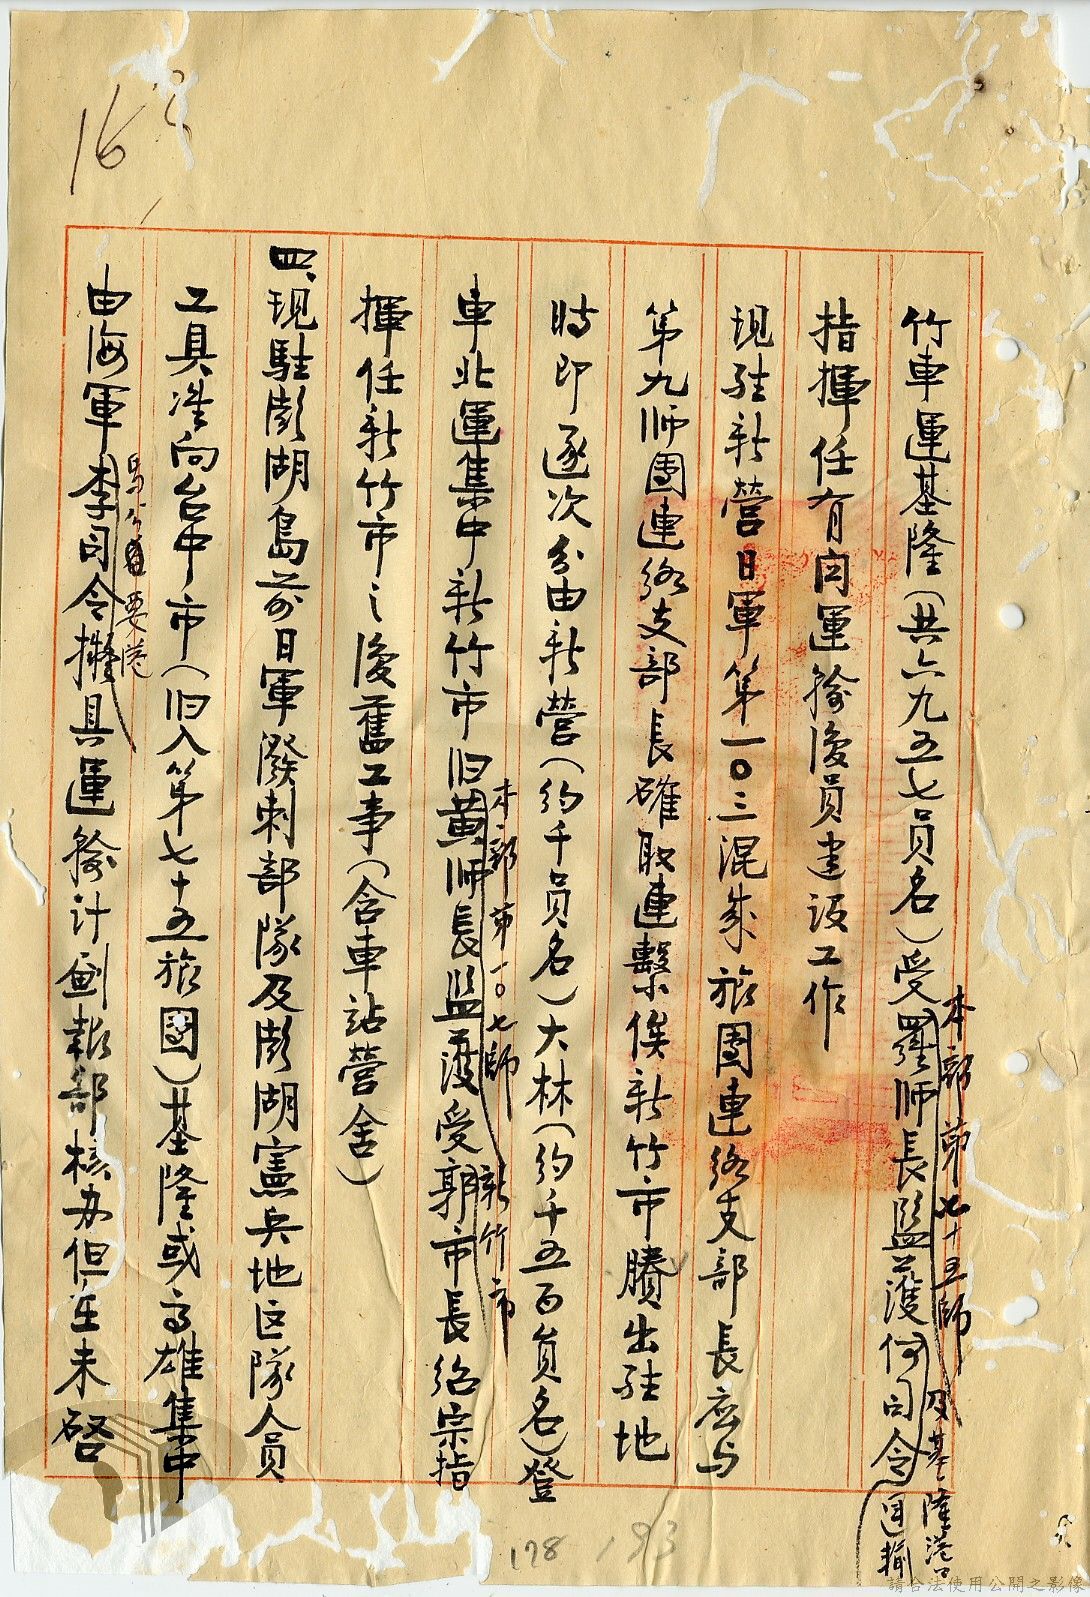 16
竹車運基隆(共六九五七員名)受羅师長監護何司令
本部第七十五师
及基隆港口
运輸
指揮任有関運輸後員建設工作
現駐新營日軍第一〇三混成旅團連絡支部長应与
第九师團連絡支部長確取連繫俟新竹市騰出駐地
時即逐次分由新營(約千員名)大林(約千五百員名)登
車北運集中新竹市旧黄师長監護受郭市長紹宗指
本部第一〇七師
新竹市
揮任新竹市之復舊工事(含車站營舍)
四、現駐澎湖島前日軍潑刺部隊及澎湖憲兵地区隊人員
工具准向台中市(旧入第七十五旅團)基隆或高雄集中
由海軍李司令擬具運輸計劃報部核办但在未啓
馬公
要港
178
193
請合法使用公開之影像